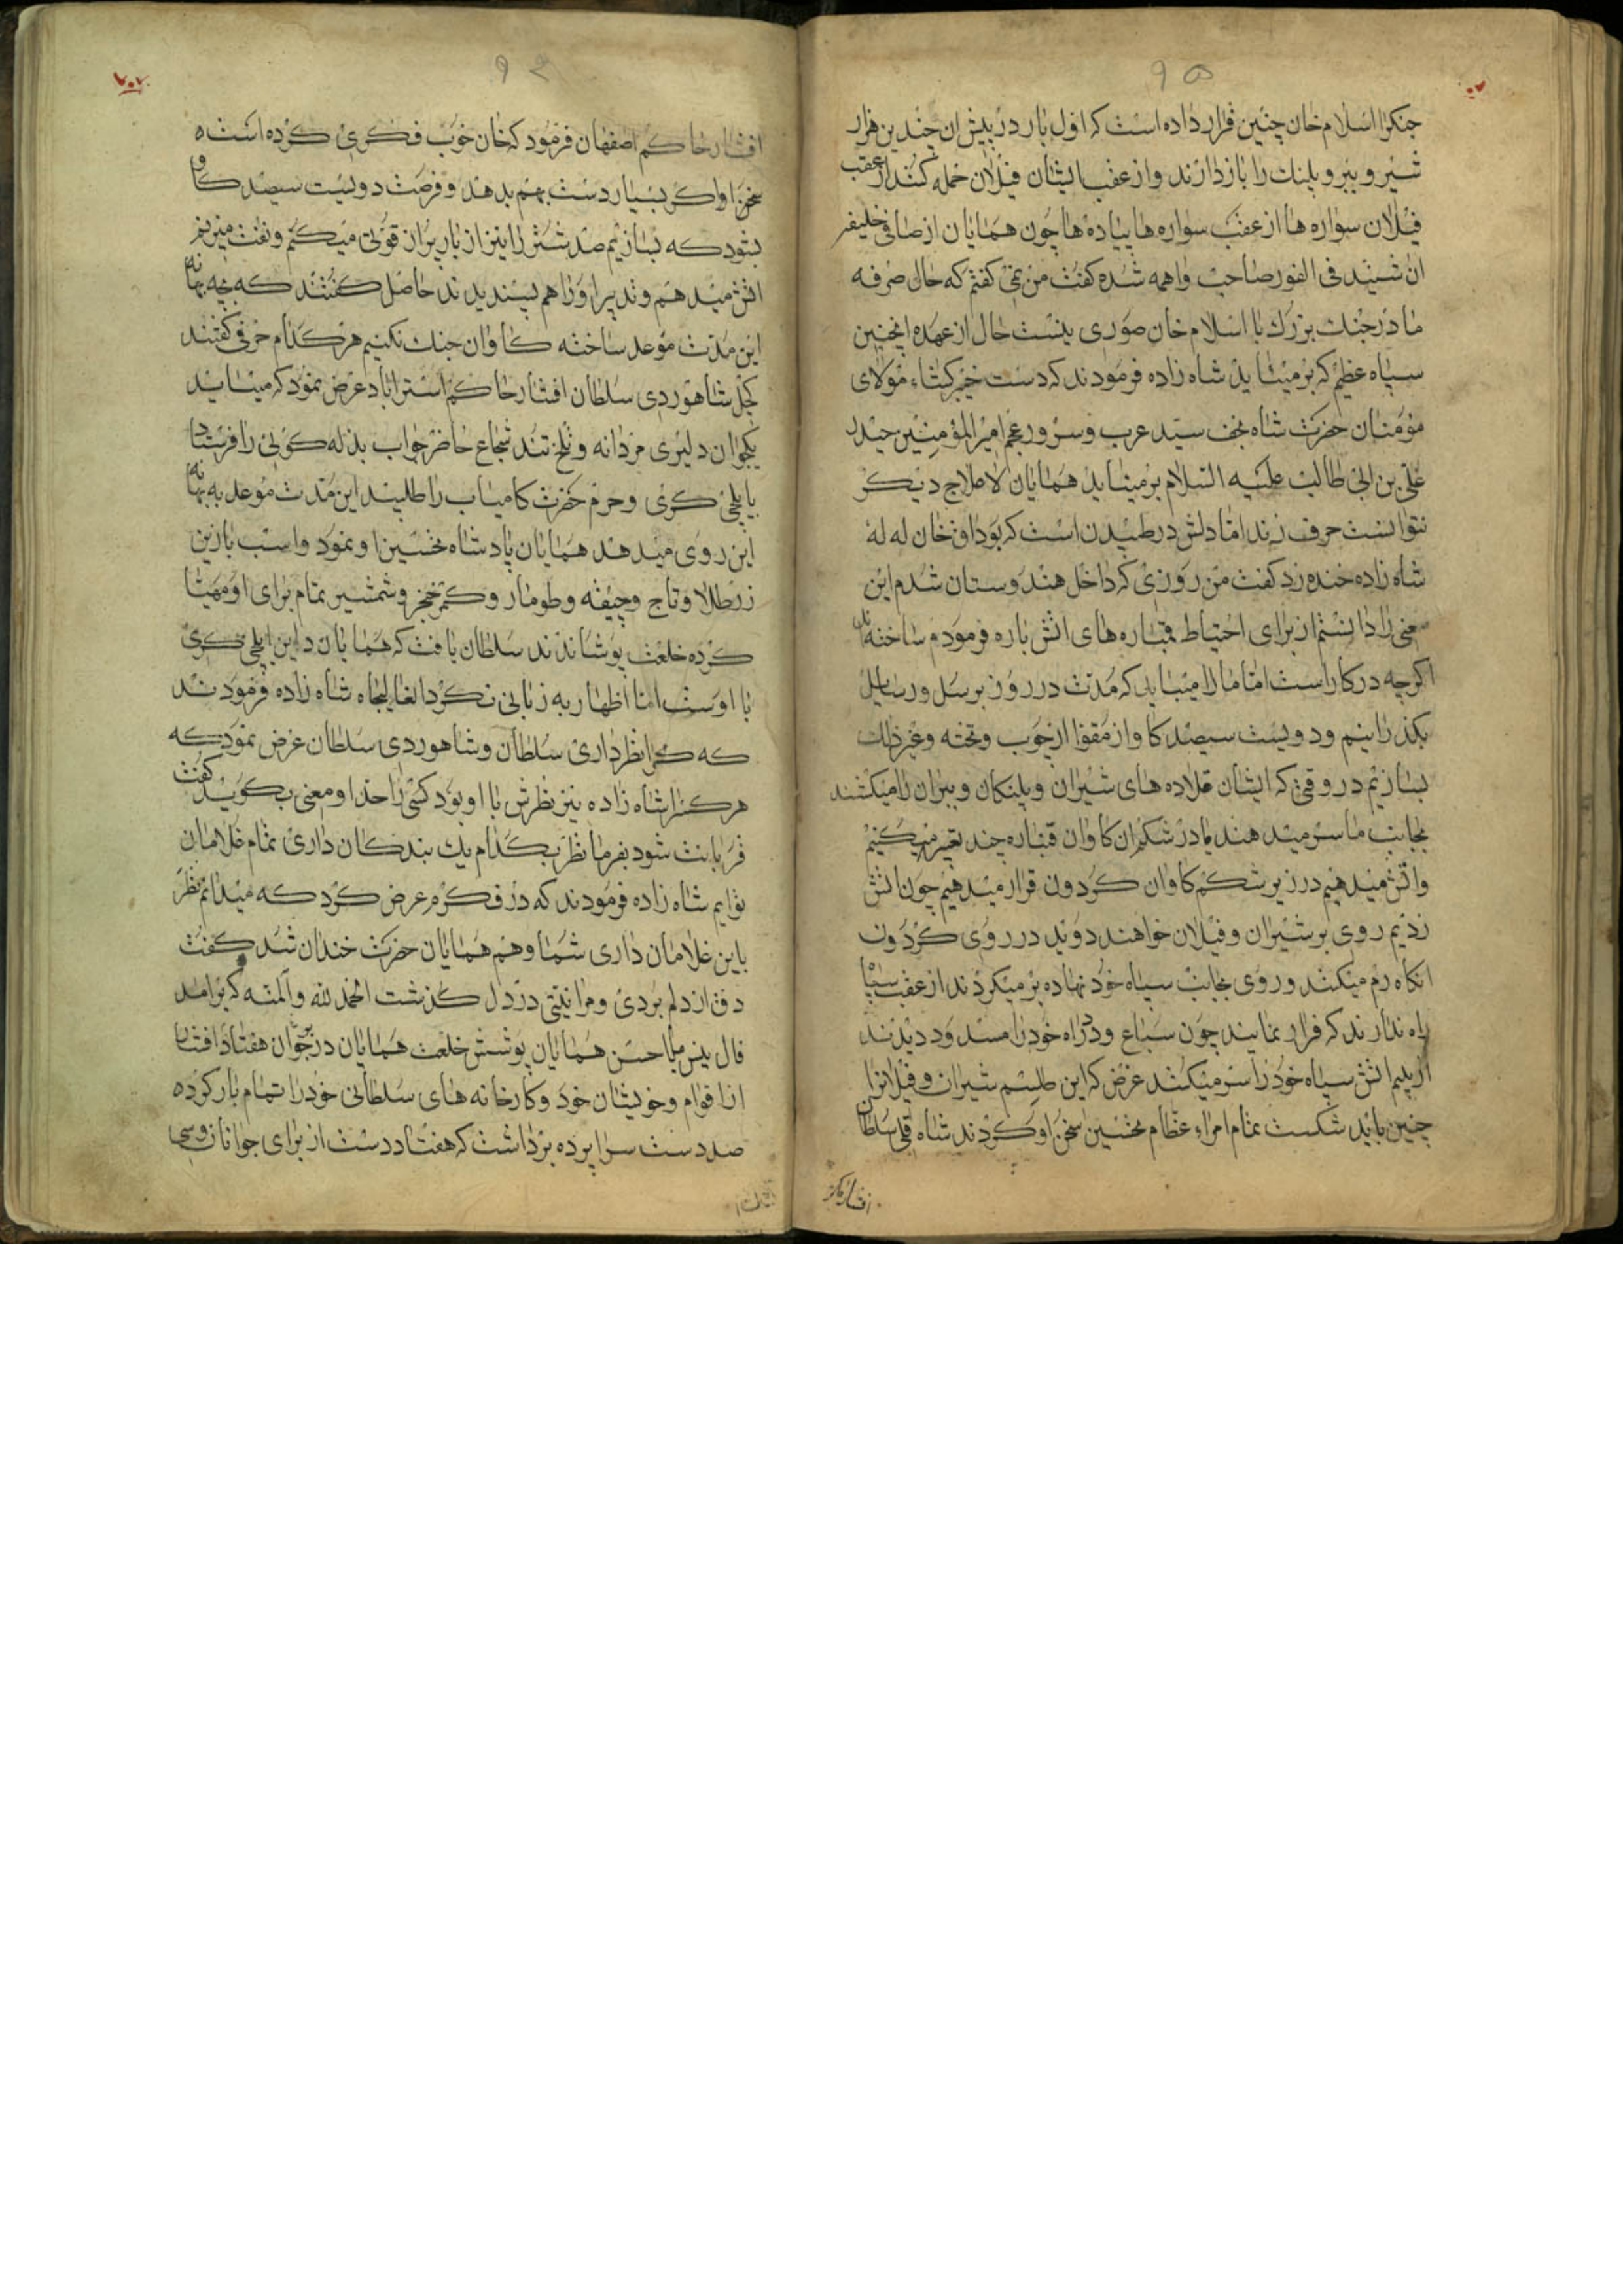 ۹۵
جنکرا اسلام خان چنین قرار داده است که اول بار در پیش ان چندین هزار
شیر و ببر و پلنک را باز دارند و از عقب ایشان فیلان حمله کنند از عقب
فیلان سواره ها از عقب سواره ها پیاده ها چون همایان از صافی خلیفه
ان شنید فی الفور صاحب واهمه شده کفت من نمی کفتم که حال صرفه
ما در جنک بزرک با اسلام خان صوری نیست حال از عهده اینچنین
سپاه عظیم که بر میاید شاه زاده فرمودند که دست خیبر کشاء مولای
مؤمنان حضرت شاه نجف سید عرب و سرور عجم امیر المؤمنین حیدر
علی بن ابی طالب علیه السلام بر میاید همایان لاعلاج دیکر
نتوانست حرف زند اما دلش در طپیدن است که بوداق خان له له
شاه زاده خنده زد کفت من روزی که داخل هندوستان شدم این
معنی را دانستم از برای احتیاط قباره های اتش باره فرمودم ساخته اند
اکرچه در کار است اما ما را میباید که مدت در روز برسل و رسایل
بکذرانیم و دویست سیصد کاو از مقوا از چوب و تخته و غیر ذلک
بسازیم در وقتی که ایشان قلاده های شیران و پلنکان و ببران را میکشند
بجانب ما سر میدهند ما در شکم ان کاوان قباره چند تعبیر میکنیم
و اتش میدهیم در زیر شکم کاوان کردون قرار میدهیم چون اتش
زدیم روی بر شیران و فیلان خواهند دوید در روی کردون
انکاه رم میکنند و روی بجانب سپاه خود نهاده بر میکردند از عقب سپاه
راه ندارند که فرار نمایند چون سباع و در راه خود را مسدود دیدند
از بیم اتش سپاه خود را سر میکنند غرض که این طلسم شیران و فیلانرا
چنین باید شکست تمام امراء عظام تحسین سخن او کردند شاه قلی سلطان
افشار حاکم
۹۴
افشار حاکم اصفهان فرمود که خان خوب فکری کرده است
سخن او اکر بسیار دست بهم بدهد و فرصت دویست سیصد کاو
بشود که بسازیم صد شتر را نیز از بار بران قوتی میکنم و نفت میزنیم
اتش میدهیم و تدبیر او را هم پسندیدند حاصل کفتند که بچه بهانه
این مدت موعد ساخته کاوان جنک نکنیم هر کدام حرفی کفتند
کچل شاهوردی سلطان افشار حاکم استراباد عرض نمود که میباید
یکجوان دلیری مردانه و تلخ تند شجاع حاضر جواب بذله کوئی را فرستاد
بایلچی کری و حرم حضرت کامیاب را طلبید این مدت موعد به بهانه
این روی میدهد همایان پادشاه تحسین او نمود و اسب بازین
زر طلا و تاج و جیغه و طومار و کمر خنجر و شمشیر تمام برای او مهیا
کرده خلعت پوشانیدند سلطان یافت که همایان را این ایلچی کری
با اوست اما اظهار به زبانی نکرد انعالیجاه شاه زاده فرمودند
که کرا نظر داری سلطان و شاهوردی سلطان عرض نمود که
هر کرا شاه زاده نیز نظرش با او بود کسی را حد او معنی بکوید کفت
قربانت شود بفرما نظر بکدام یک بندکان داری تمام غلامان
توایم شاه زاده فرمودند که در فکرم عرض کرد که میدانم نظر
باین غلامان داری شما و هم همایان حضرت خندان شد کفت
دق از دلم بردی و مرا نیتی در دل کذشت الحمد لله و المنه که برامد
فال نیس میرزا حسن همایان پوشش خلعت همایان در برجوان هفتاد افشار
از اقوام و خویشان خود و کارخانه های سلطانی خود را تمام بار کرده
صد دست سراپرده برداشت که هفتاد دست از برای جوانان و سی